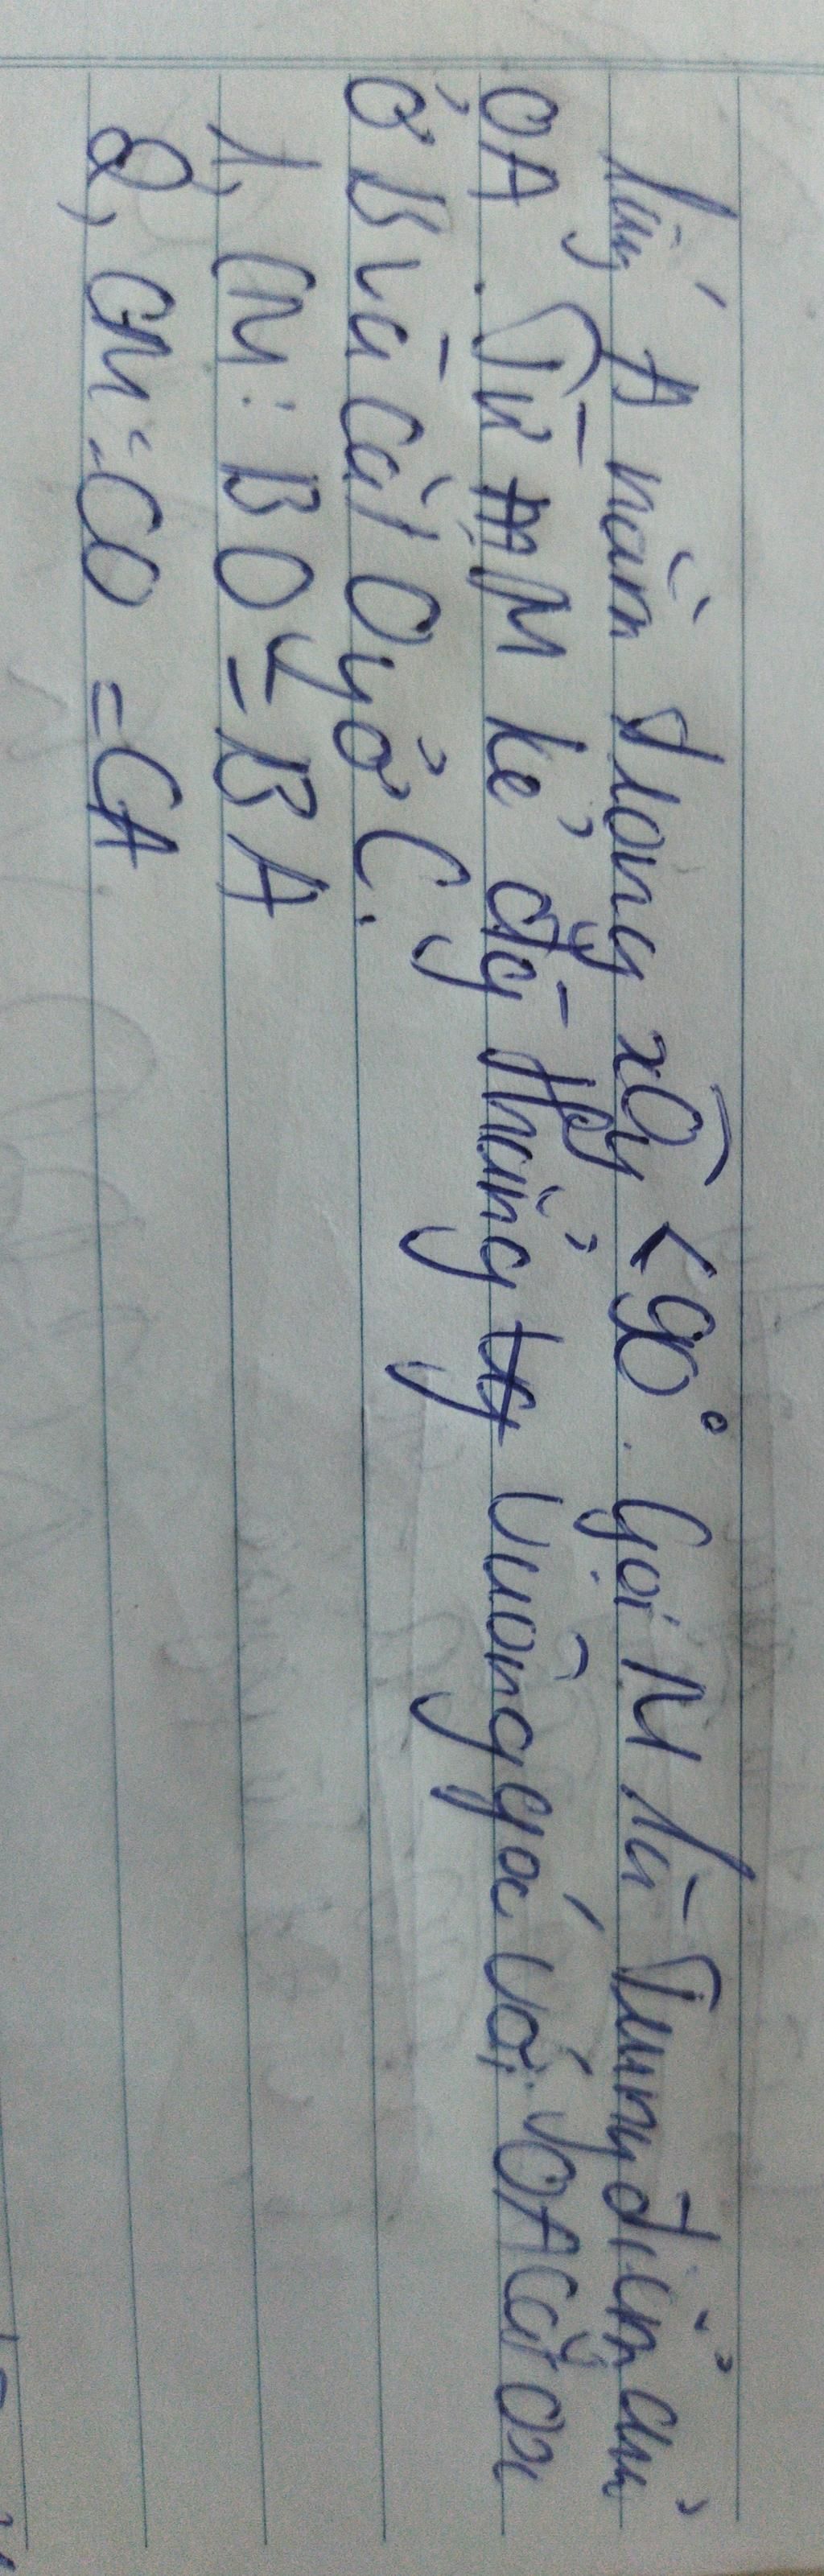 Lấy A nằm trong xOy < 90°. Gọi M là Trung điểm của
OA. Từ M kẻ đg thẳng vuông góc với OA cắt ox
ở B và cắt Oy ở C.
1, CM: BO = BA
2, CM: CO = CA